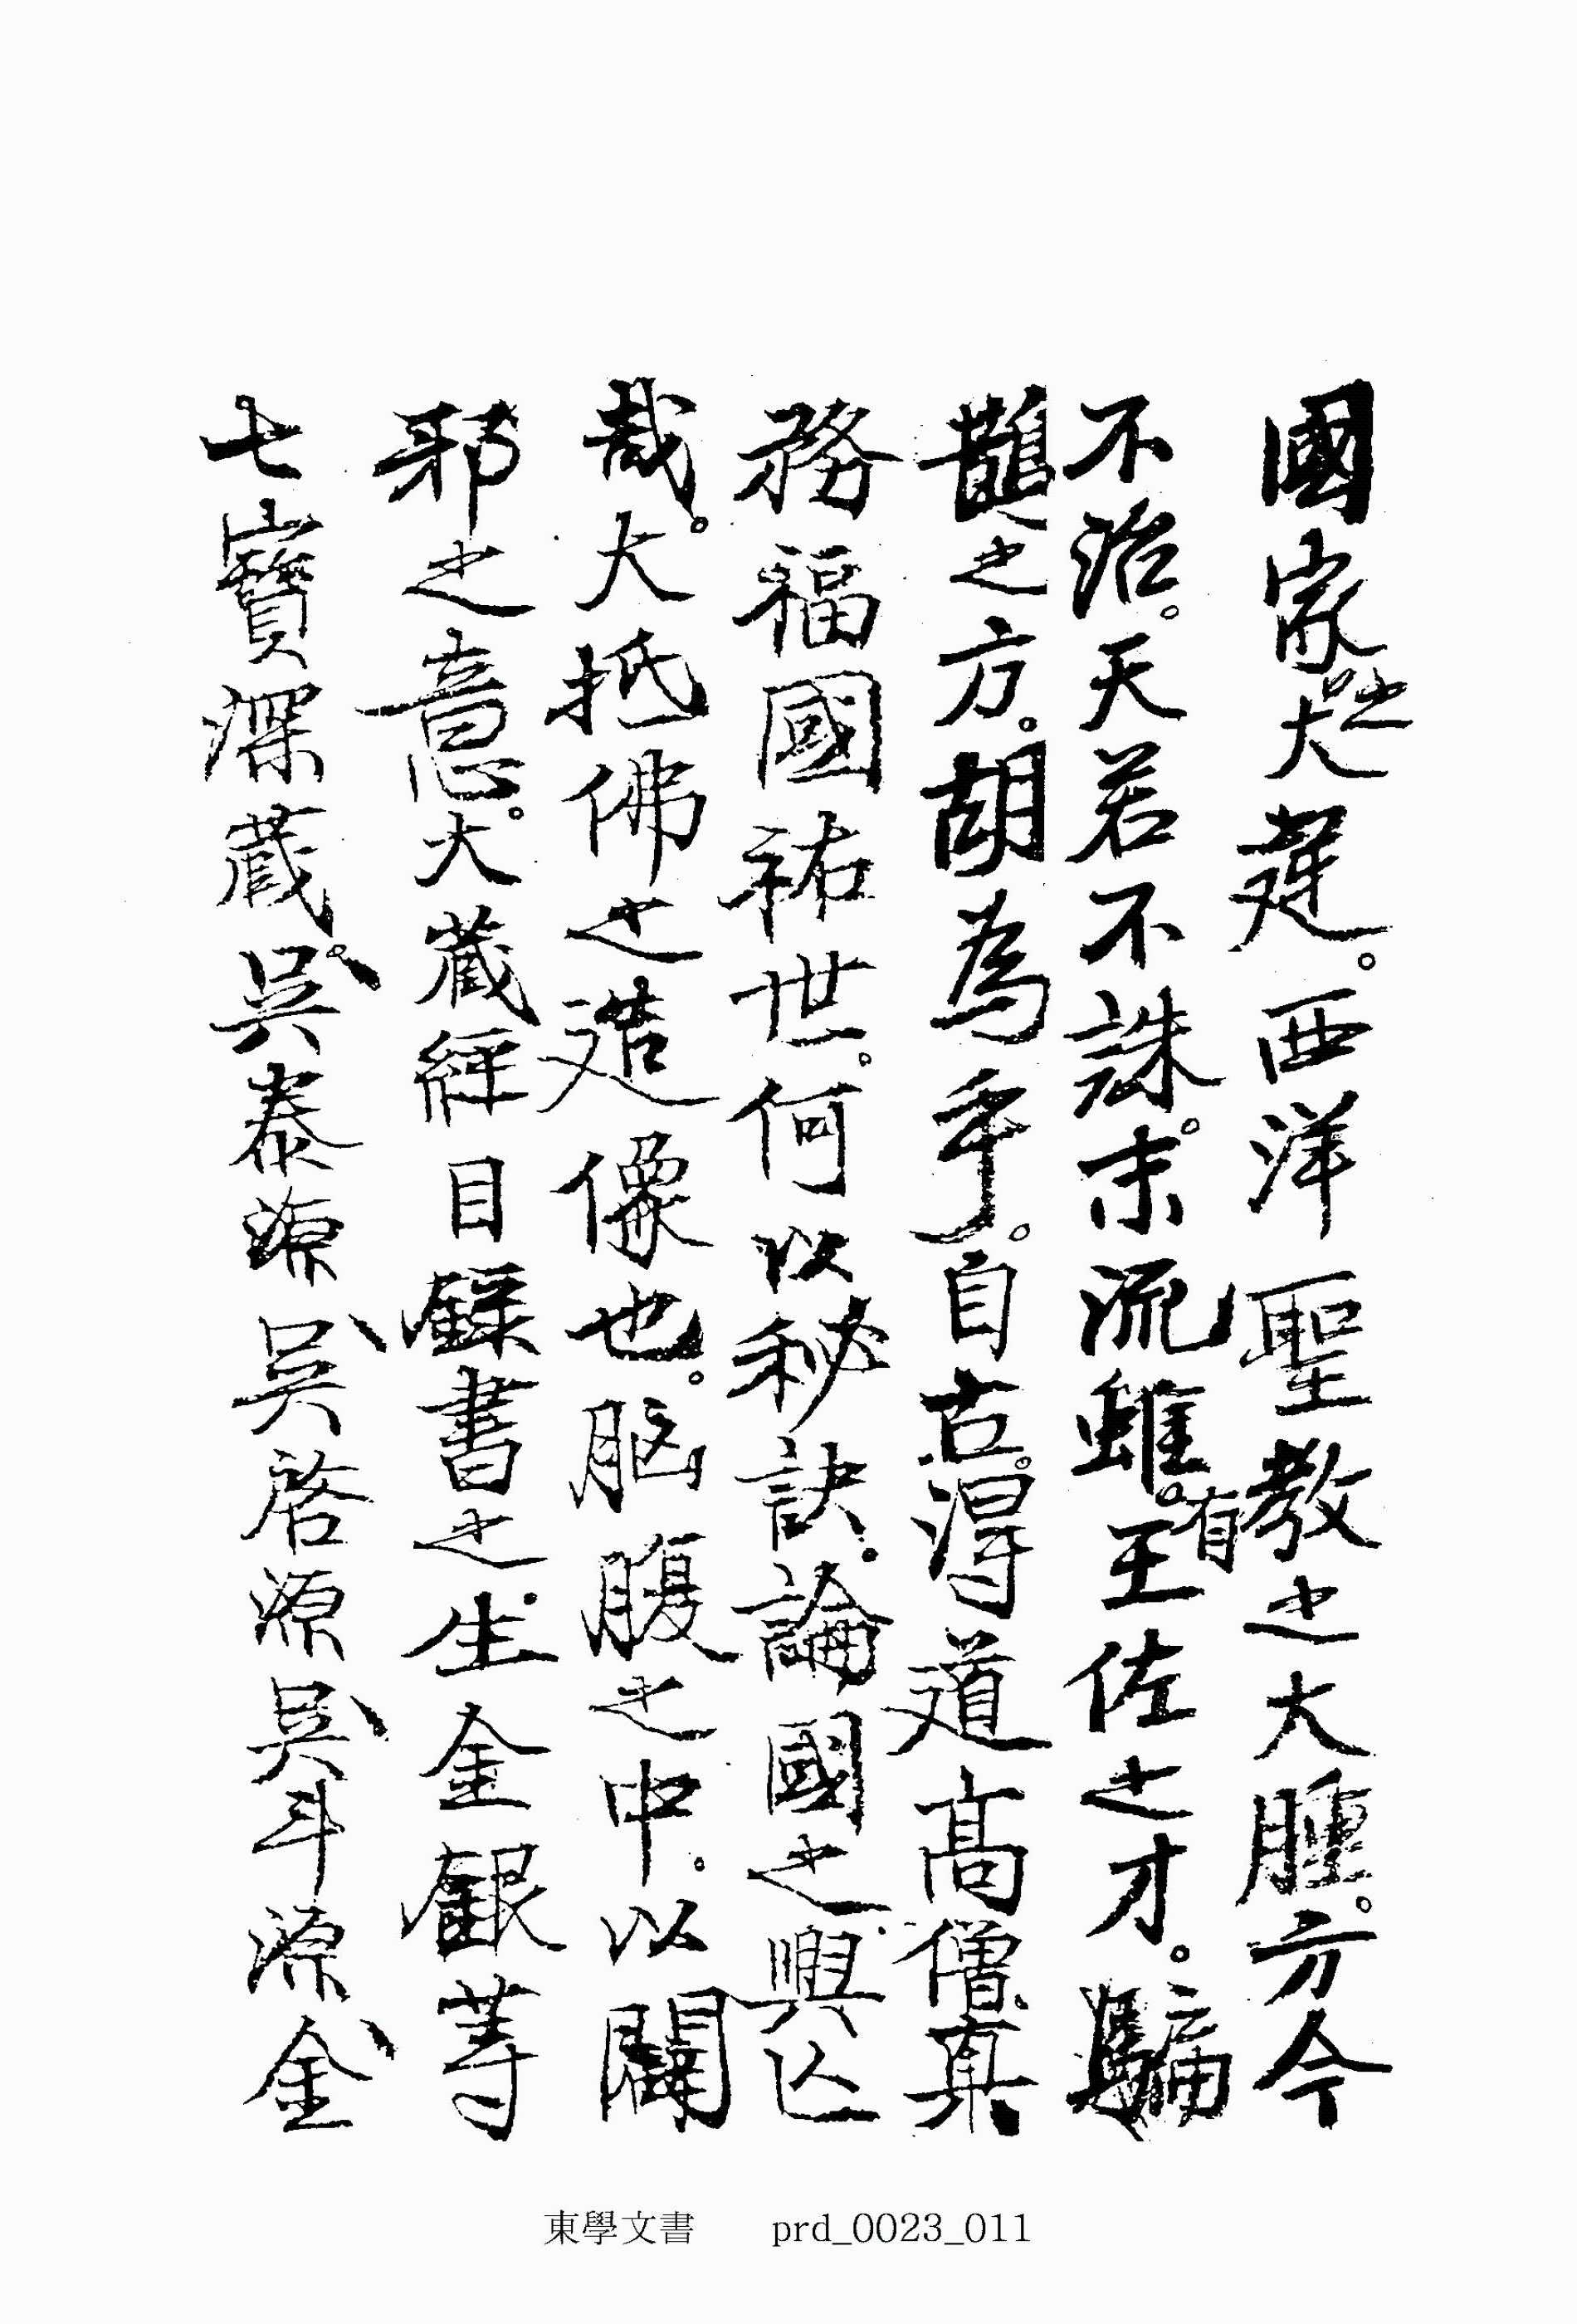 國家之大蹇。西洋聖敎之大腫。方今
不治。天若不誅。末流雖有王佐之才。騙
鵲之方。胡爲乎。自古。得道高僧。真
務福國祐世。何以秘訣。論國之興亾
哉。大抵佛之造像也。脳腹之中。以闢
邪之意。大蔵經目錄書之。生金銀等
七寶深蔵。吳泰源吳啓源吳斗源金
東學文書 prd_0023_011